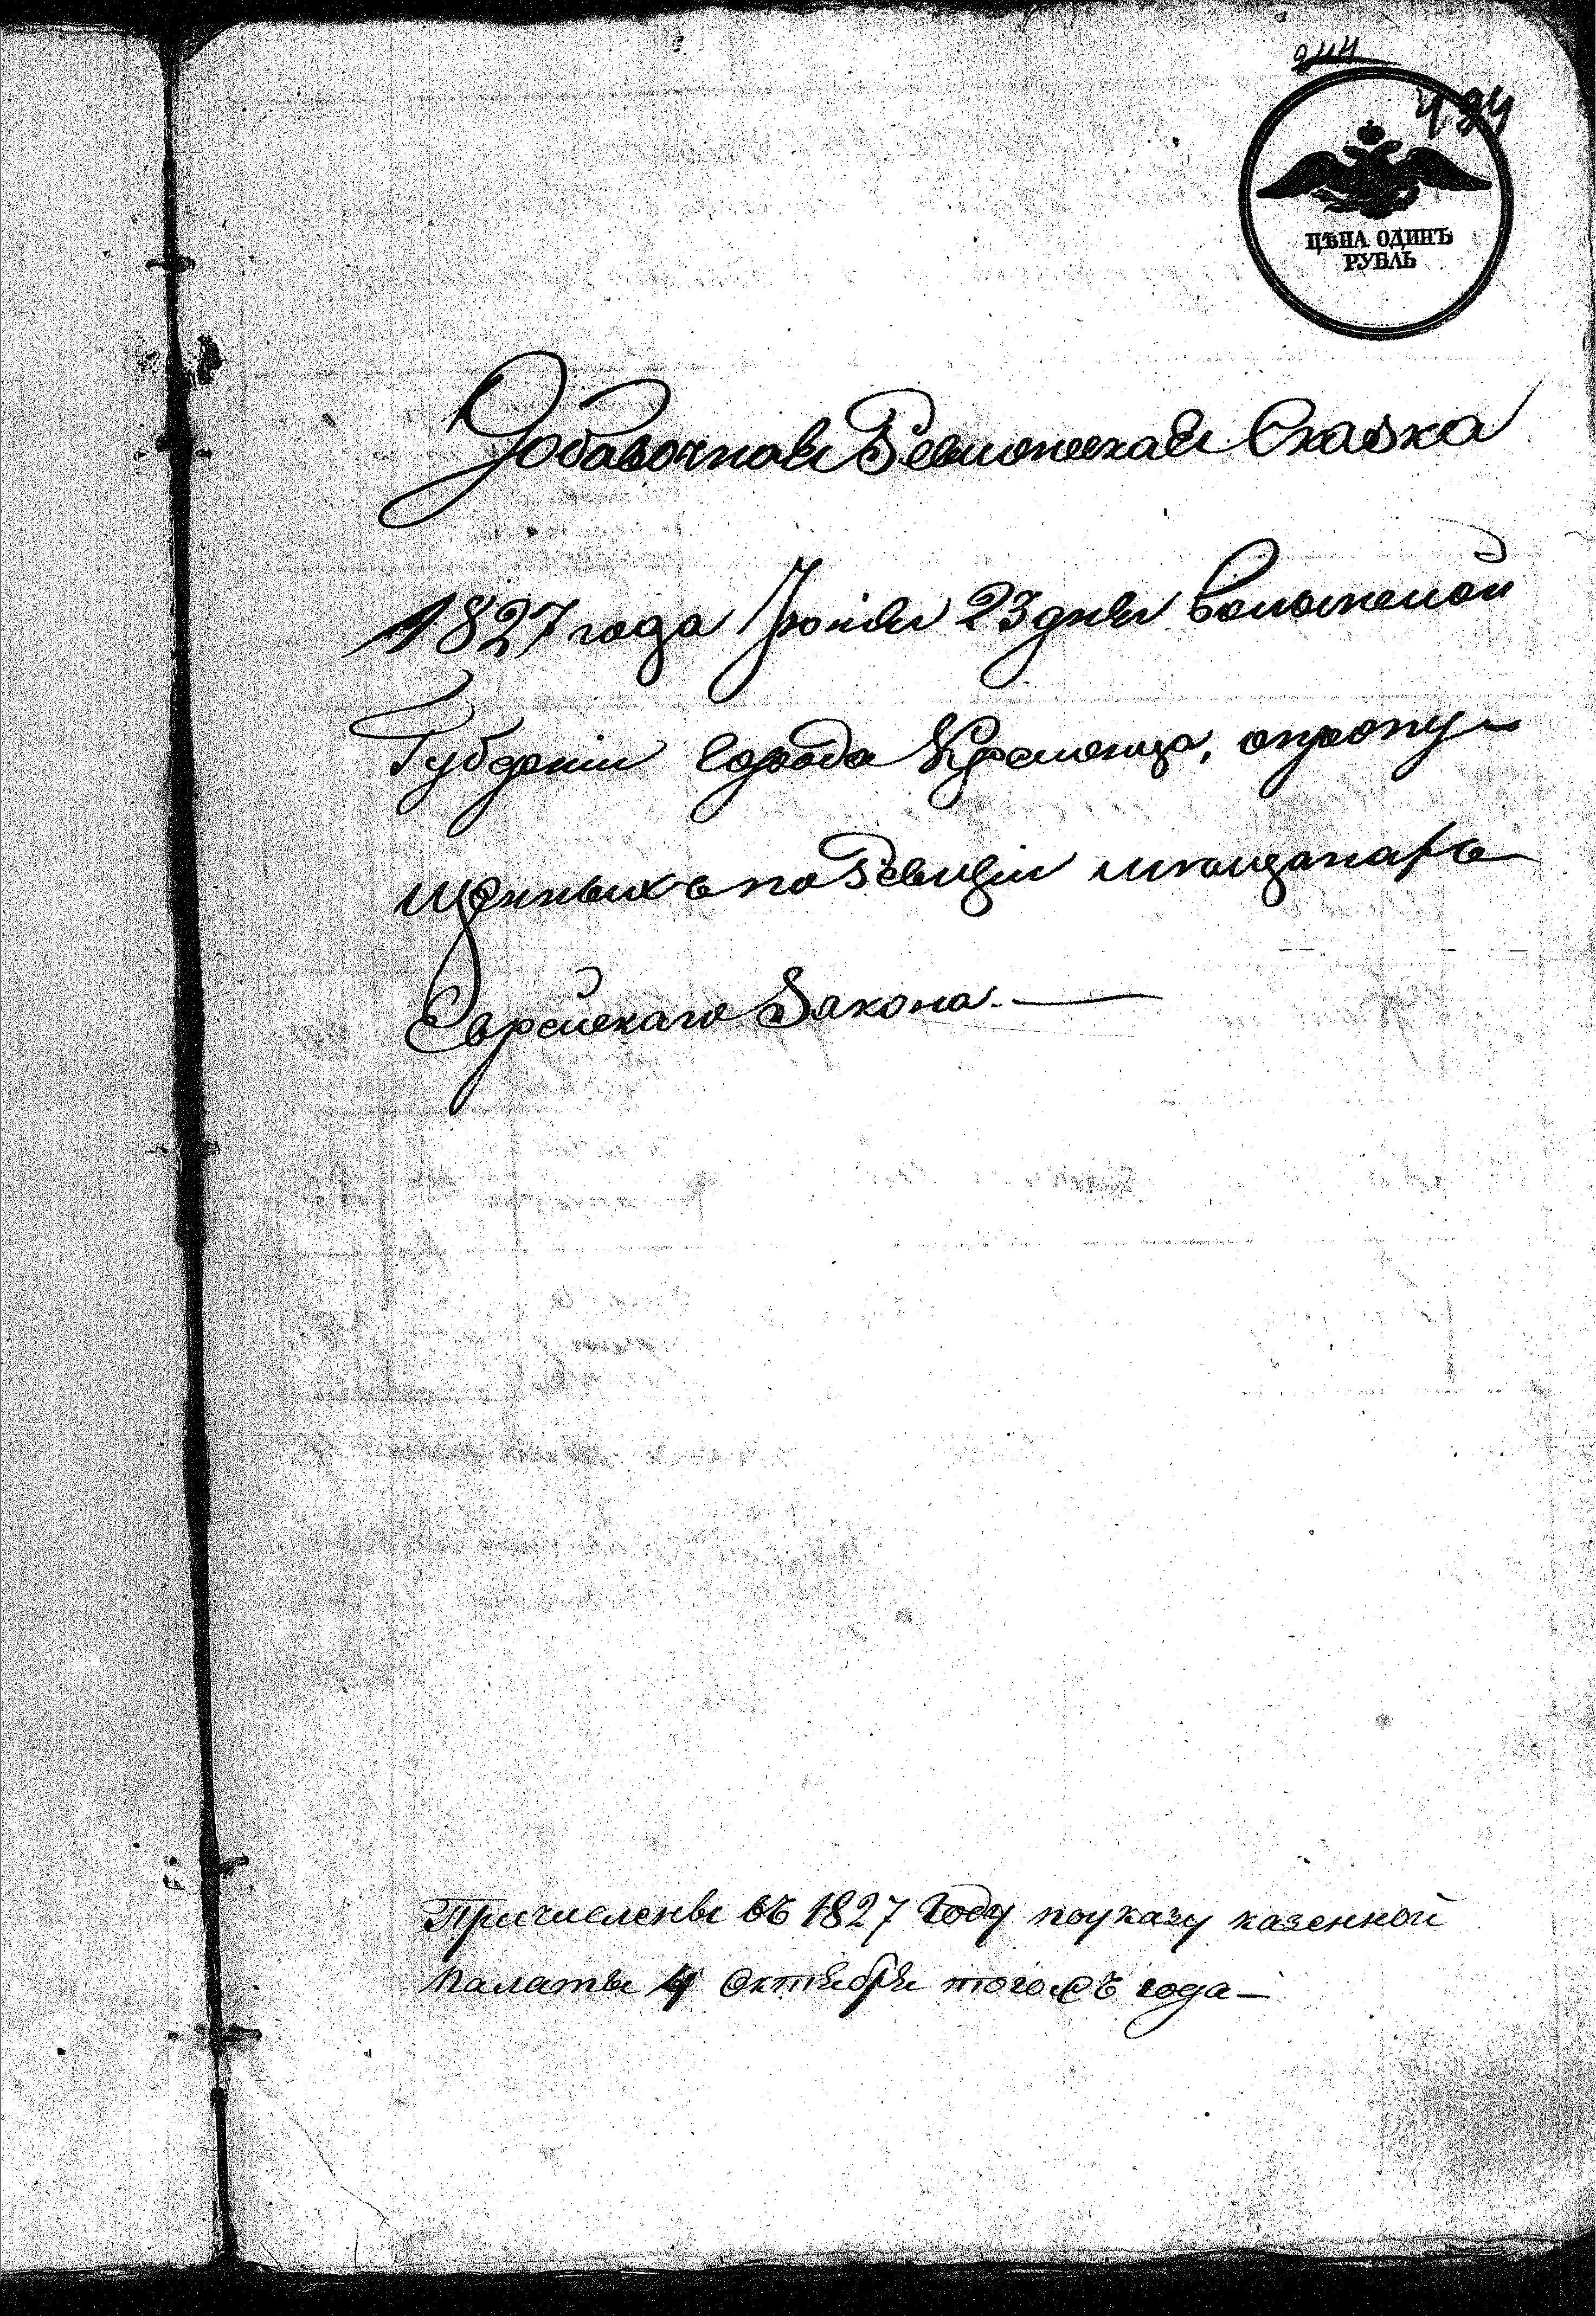 494
ЦѢНА ОДИНЪ
РУБЛЬ
Добавочная Ревизская Сказка
1827 года Іюня 23 дня Волынской
Губерніи города Кременца, опропу-
щенныхъ по Ревизіи мещанахъ
Еврейскаго Закона.
Причислены въ 1827 году по указу казенной
палаты 4 Октября того жъ года —